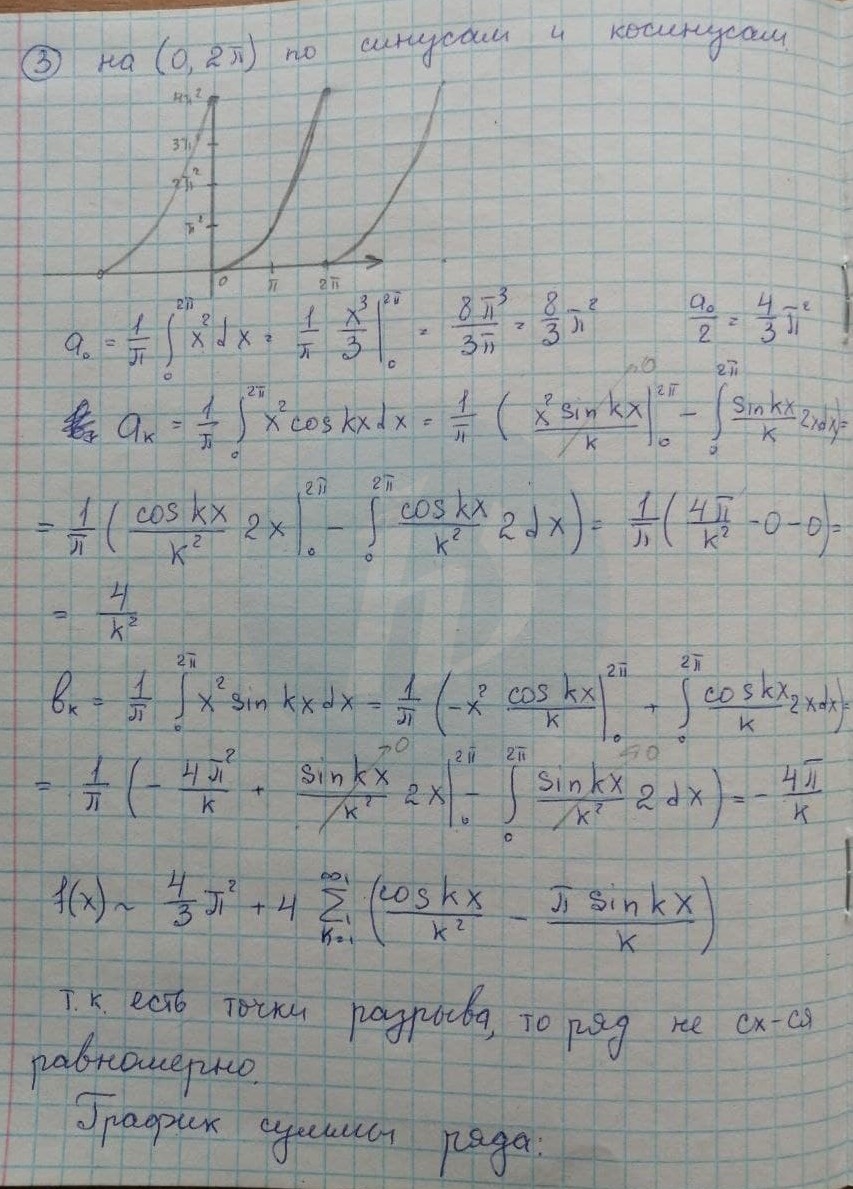 ③ на (0, 2π) по синусам и косинусам
4π²
3π²
2π²
π²
0 π 2π
a₀ = 1/π ∫₀^{2π} x² dx = 1/π x³/3 |₀^{2π} = 8π³/3π = 8/3 π² a₀/2 = 4/3 π²
aₖ = 1/π ∫₀^{2π} x² cos kx dx = 1/π ( x² sin kx/k |₀^{2π} →0 − ∫₀^{2π} sin kx/k 2x dx) =
= 1/π ( cos kx/k² 2x |₀^{2π} − ∫₀^{2π} cos kx/k² 2 dx ) = 1/π ( 4π/k² − 0 − 0) =
= 4/k²
bₖ = 1/π ∫₀^{2π} x² sin kx dx = 1/π (−x² cos kx/k |₀^{2π} + ∫₀^{2π} cos kx/k 2x dx) =
= 1/π ( − 4π²/k + sin kx/k² 2x |₀^{2π} →0 − ∫₀^{2π} sin kx/k² 2 dx =0 ) = − 4π/k
f(x) ~ 4/3 π² + 4 ∑_{k=1}^{∞} ( cos kx/k² − π sin kx/k )
т.к. есть точки разрыва, то ряд не сх-ся
равномерно.
График суммы ряда: